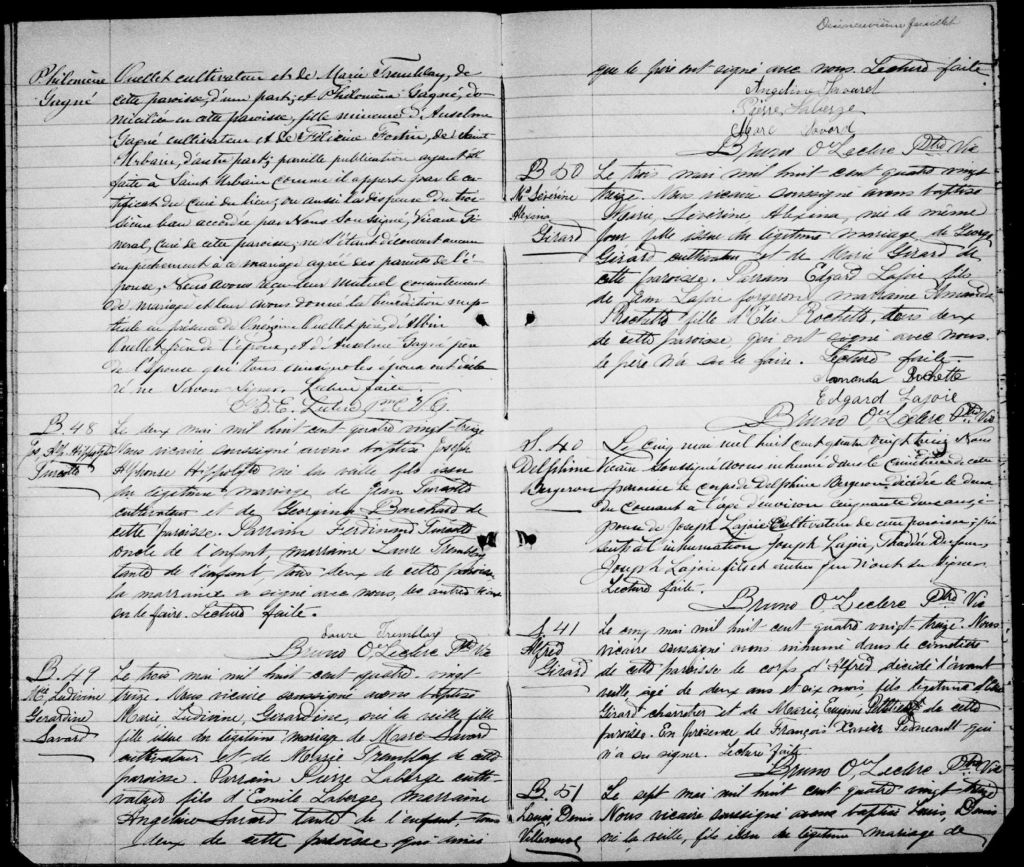 Philomène
Gagné
Ouellet cultivateur et de Marie Tremblay, de
cette paroisse, d'une part; et Philomène Gagné, do-
miciliée en cette paroisse, fille mineure d'Anselme
Gagné cultivateur et de Félicine Fortin, de Saint
Urbain, d'autre part; pareille publication ayant été
faite à Saint Urbain comme il appert par le cer-
tificat du curé du lieu; vu aussi la dispense du troi-
sième ban accordée par Nous Soussigné, Vicaire Gé-
néral, curé de cette paroisse, ne s'étant découvert aucun
empêchement à ce mariage agréé des parents de l'é-
pouse, Nous avons reçu leur mutuel consentement
de mariage et leur avons donné la bénédiction nup-
tiale en présence de Onésime Ouellet père, d'Albin
Ouellet, de l'époux, et d'Anselme Gagné père
de l'épouse qui tous ainsi que les époux ont décla-
ré ne savoir signer. Lecture faite.
B. E. Leclerc Ptre C. V. G.
B. 48
Jos. Alp. Hippolyte
Turcotte
Le deux mai mil huit cent quatre vingt-treize
Nous vicaire soussigné avons baptisé Joseph
Alphonse Hippolyte né la veille fils issu
du légitime mariage de Jean Turcotte
cultivateur et de Georgina Bouchard de
cette paroisse. Parrain Ferdinand Turcotte
oncle de l'enfant, marraine Laure Tremblay
tante de l'enfant, tous deux de cette paroisse
la marraine a signé avec nous, les autres n'ont
su le faire. Lecture faite.
Laure Tremblay
Bruno O. Leclerc Ptre Vic
B. 49
Mie Ludivine
Gérardine
Savard
Le trois mai mil huit cent quatre vingt
treize. Nous vicaire soussigné avons baptisé
Marie Ludivine, Gérardine, née la veille fille
fille issue du légitime mariage de Marc Savard
cultivateur et de Marie Tremblay de cette
paroisse. Parrain Pierre Laberge culti-
vateur fils d'Emile Laberge, marraine
Angeline Savard tante de l'enfant tous
deux de cette paroisse qui ainsi
Dixneuvième feuillet
que le père ont signé avec nous. Lecture faite
Angeline Savard
Pierre Laberge
Marc Savard
Bruno O. Leclerc Ptre Vic
B 50
Me Séverine
Alexina
Girard
Le trois mai mil huit cent quatre vingt
treize. Nous vicaire soussigné avons baptisé
Marie, Séverine, Alexina, née le même
jour fille issue du légitime mariage de George
Girard cultivateur et de Marie Girard de
cette paroisse. Parrain Edgard Lajoie fils
de Jean Lajoie forgeron, marraine Amanda
Rochette fille d'Elie Rochette, tous deux
de cette paroisse, qui ont signé avec nous.
le père n'a su le faire. Lecture faite.
Amanda Rochette
Edgard Lajoie
Bruno O. Leclerc Ptre Vic
S. 40
Delphine
Bergeron
Le cinq mai mil huit cent quatre vingt treize Nous
Vicaire soussigné avons inhumé dans le cimetière de cette
paroisse le corps de Delphine Bergeron décédée le deux
du courant à l'âge d'environ cinquante deux ans, é-
pouse de Joseph Lajoie Cultivateur de cette paroisse; pré-
sents à l'inhumation Joseph Lajoie, Thaddé Dufour,
Joseph Lajoie fils et autres qui n'ont su signer.
Lecture faite.
Bruno O. Leclerc Ptre Vic
S. 41
Alfred
Girard
Le cinq mai mil huit cent quatre vingt-treize. Nous
vicaire soussigné avons inhumé dans le cimetière
de cette paroisse le corps d'Alfred, décédé l'avant
veille âgé de deux ans et six mois fils légitime d'
Girard charretier et de Marie, Eugénie de cette
paroisse. En présence de François Xavier qui
n'a su signer. Lecture faite
Bruno O. Leclerc Ptre Vic
B. 51
Louis, Denis
Villeneuve
Le sept mai mil huit cent quatre vingt treize
Nous vicaire soussigné avons baptisé Louis, Denis
né la veille, fils issu du légitime mariage de